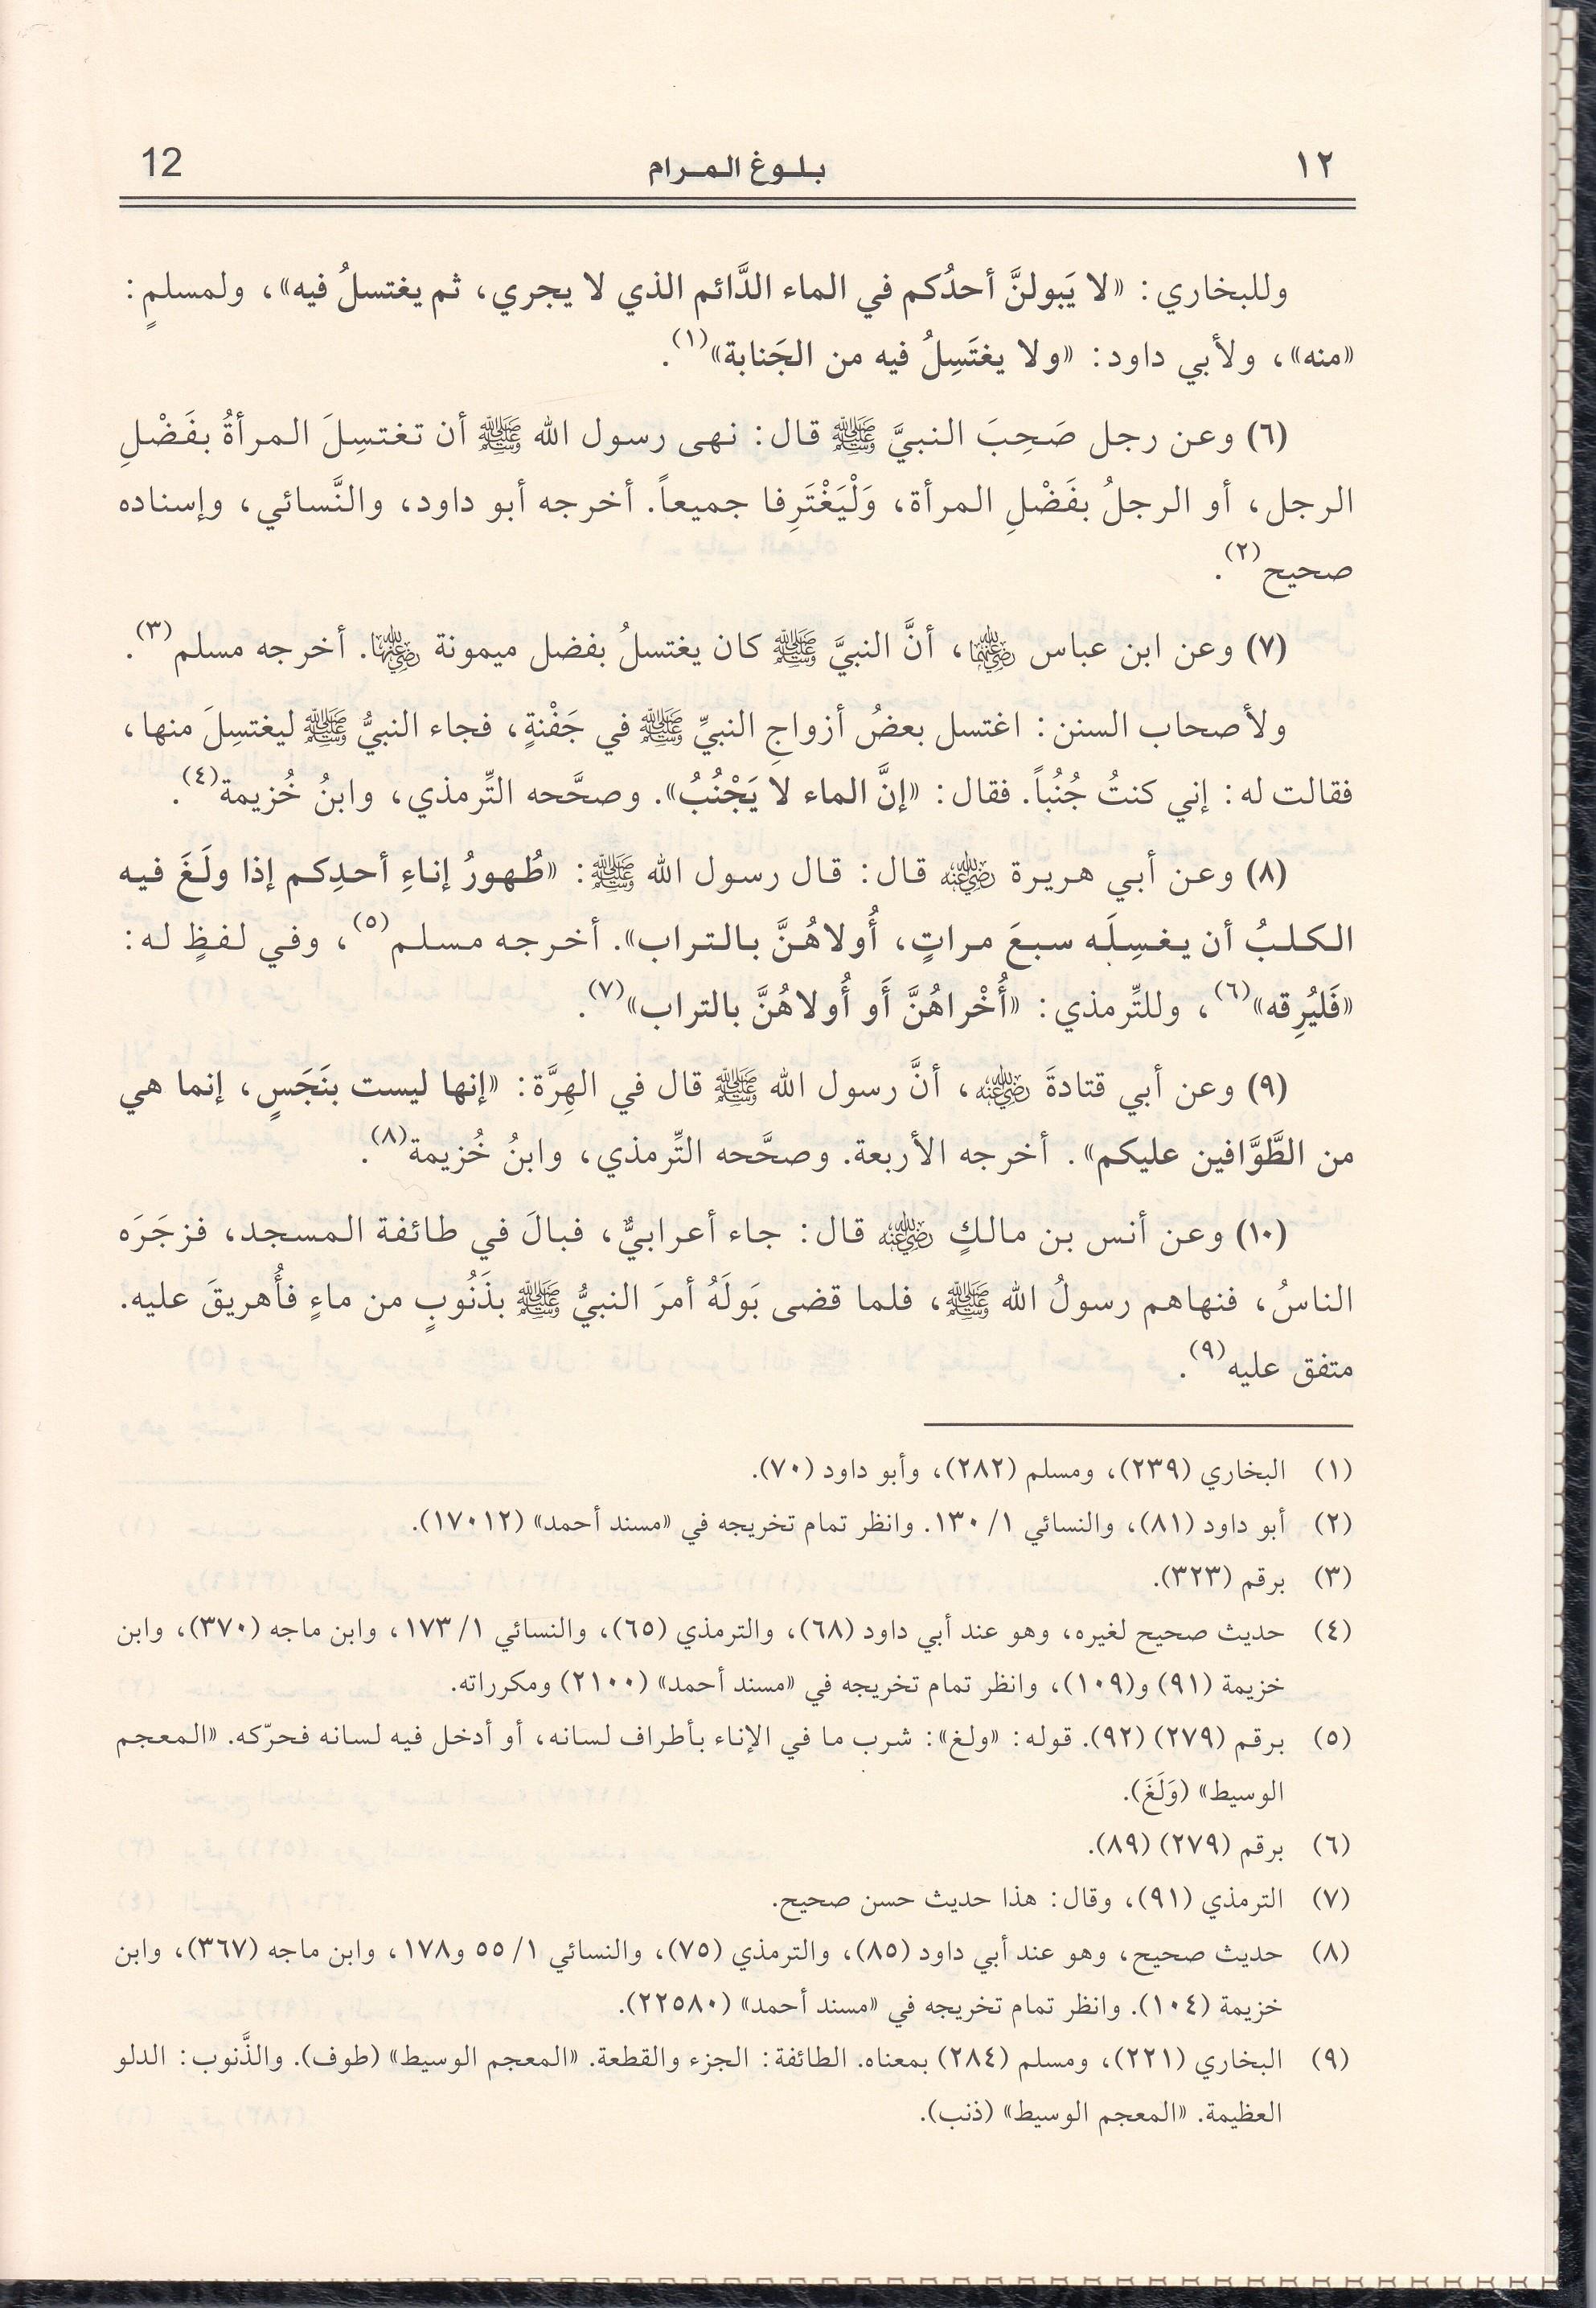 ١٢ بلوغ المرام 12
وللبخاري: «لا يَبولنَّ أحدُكم في الماء الدَّائم الذي لا يجري، ثم يغتسلُ فيه»، ولمسلمٍ:
«منه»، ولأبي داود: «ولا يغتَسِلُ فيه من الجَنابة»(١).
(٦) وعن رجل صَحِبَ النبيَّ ﷺ قال: نهى رسول الله ﷺ أن تغتسِلَ المرأةُ بفَضْلِ
الرجل، أو الرجلُ بفَضْلِ المرأة، وَلْيَغْتَرِفا جميعاً. أخرجه أبو داود، والنَّسائي، وإسناده
صحيح(٢).
(٧) وعن ابن عباس رضي الله عنهما، أنَّ النبيَّ ﷺ كان يغتسلُ بفضل ميمونة رضي الله عنها. أخرجه مسلم(٣).
ولأصحاب السنن: اغتسل بعضُ أزواجِ النبيِّ ﷺ في جَفْنةٍ، فجاء النبيُّ ﷺ ليغتسِلَ منها،
فقالت له: إني كنتُ جُنُباً. فقال: «إنَّ الماء لا يَجْنُبُ». وصحَّحه التِّرمذي، وابنُ خُزيمة(٤).
(٨) وعن أبي هريرة رضي الله عنه قال: قال رسول الله ﷺ: «طُهورُ إناءِ أحدِكم إذا ولَغَ فيه
الكلبُ أن يغسِلَه سبعَ مراتٍ، أُولاهُنَّ بالتراب». أخرجه مسلم(٥)، وفي لفظٍ له:
«فَليُرِقه»(٦)، وللتِّرمذي: «أُخْراهُنَّ أَو أُولاهُنَّ بالتراب»(٧).
(٩) وعن أبي قتادةَ رضي الله عنه، أنَّ رسول الله ﷺ قال في الهِرَّة: «إنها ليست بنَجَسٍ، إنما هي
من الطَّوَّافين عليكم». أخرجه الأربعة. وصحَّحه التِّرمذي، وابنُ خُزيمة(٨).
(١٠) وعن أنس بن مالكٍ رضي الله عنه قال: جاء أعرابيٌّ، فبالَ في طائفة المسجد، فزجَرَه
الناسُ، فنهاهم رسولُ الله ﷺ، فلما قضى بَولَهُ أمرَ النبيُّ ﷺ بذَنُوبٍ من ماءٍ فأُهريقَ عليه.
متفق عليه(٩).
(١) البخاري (٢٣٩)، ومسلم (٢٨٢)، وأبو داود (٧٠).
(٢) أبو داود (٨١)، والنسائي ١/ ١٣٠. وانظر تمام تخريجه في «مسند أحمد» (١٧٠١٢).
(٣) برقم (٣٢٣).
(٤) حديث صحيح لغيره، وهو عند أبي داود (٦٨)، والترمذي (٦٥)، والنسائي ١/ ١٧٣، وابن ماجه (٣٧٠)، وابن
خزيمة (٩١) و(١٠٩)، وانظر تمام تخريجه في «مسند أحمد» (٢١٠٠) ومكرراته.
(٥) برقم (٢٧٩) (٩٢). قوله: «ولغ»: شرب ما في الإناء بأطراف لسانه، أو أدخل فيه لسانه فحرّكه. «المعجم
الوسيط» (وَلَغَ).
(٦) برقم (٢٧٩) (٨٩).
(٧) الترمذي (٩١)، وقال: هذا حديث حسن صحيح.
(٨) حديث صحيح، وهو عند أبي داود (٨٥)، والترمذي (٧٥)، والنسائي ١/ ٥٥ و١٧٨، وابن ماجه (٣٦٧)، وابن
خزيمة (١٠٤). وانظر تمام تخريجه في «مسند أحمد» (٢٢٥٨٠).
(٩) البخاري (٢٢١)، ومسلم (٢٨٤) بمعناه. الطائفة: الجزء والقطعة. «المعجم الوسيط» (طوف). والذَّنوب: الدلو
العظيمة. «المعجم الوسيط» (ذنب).